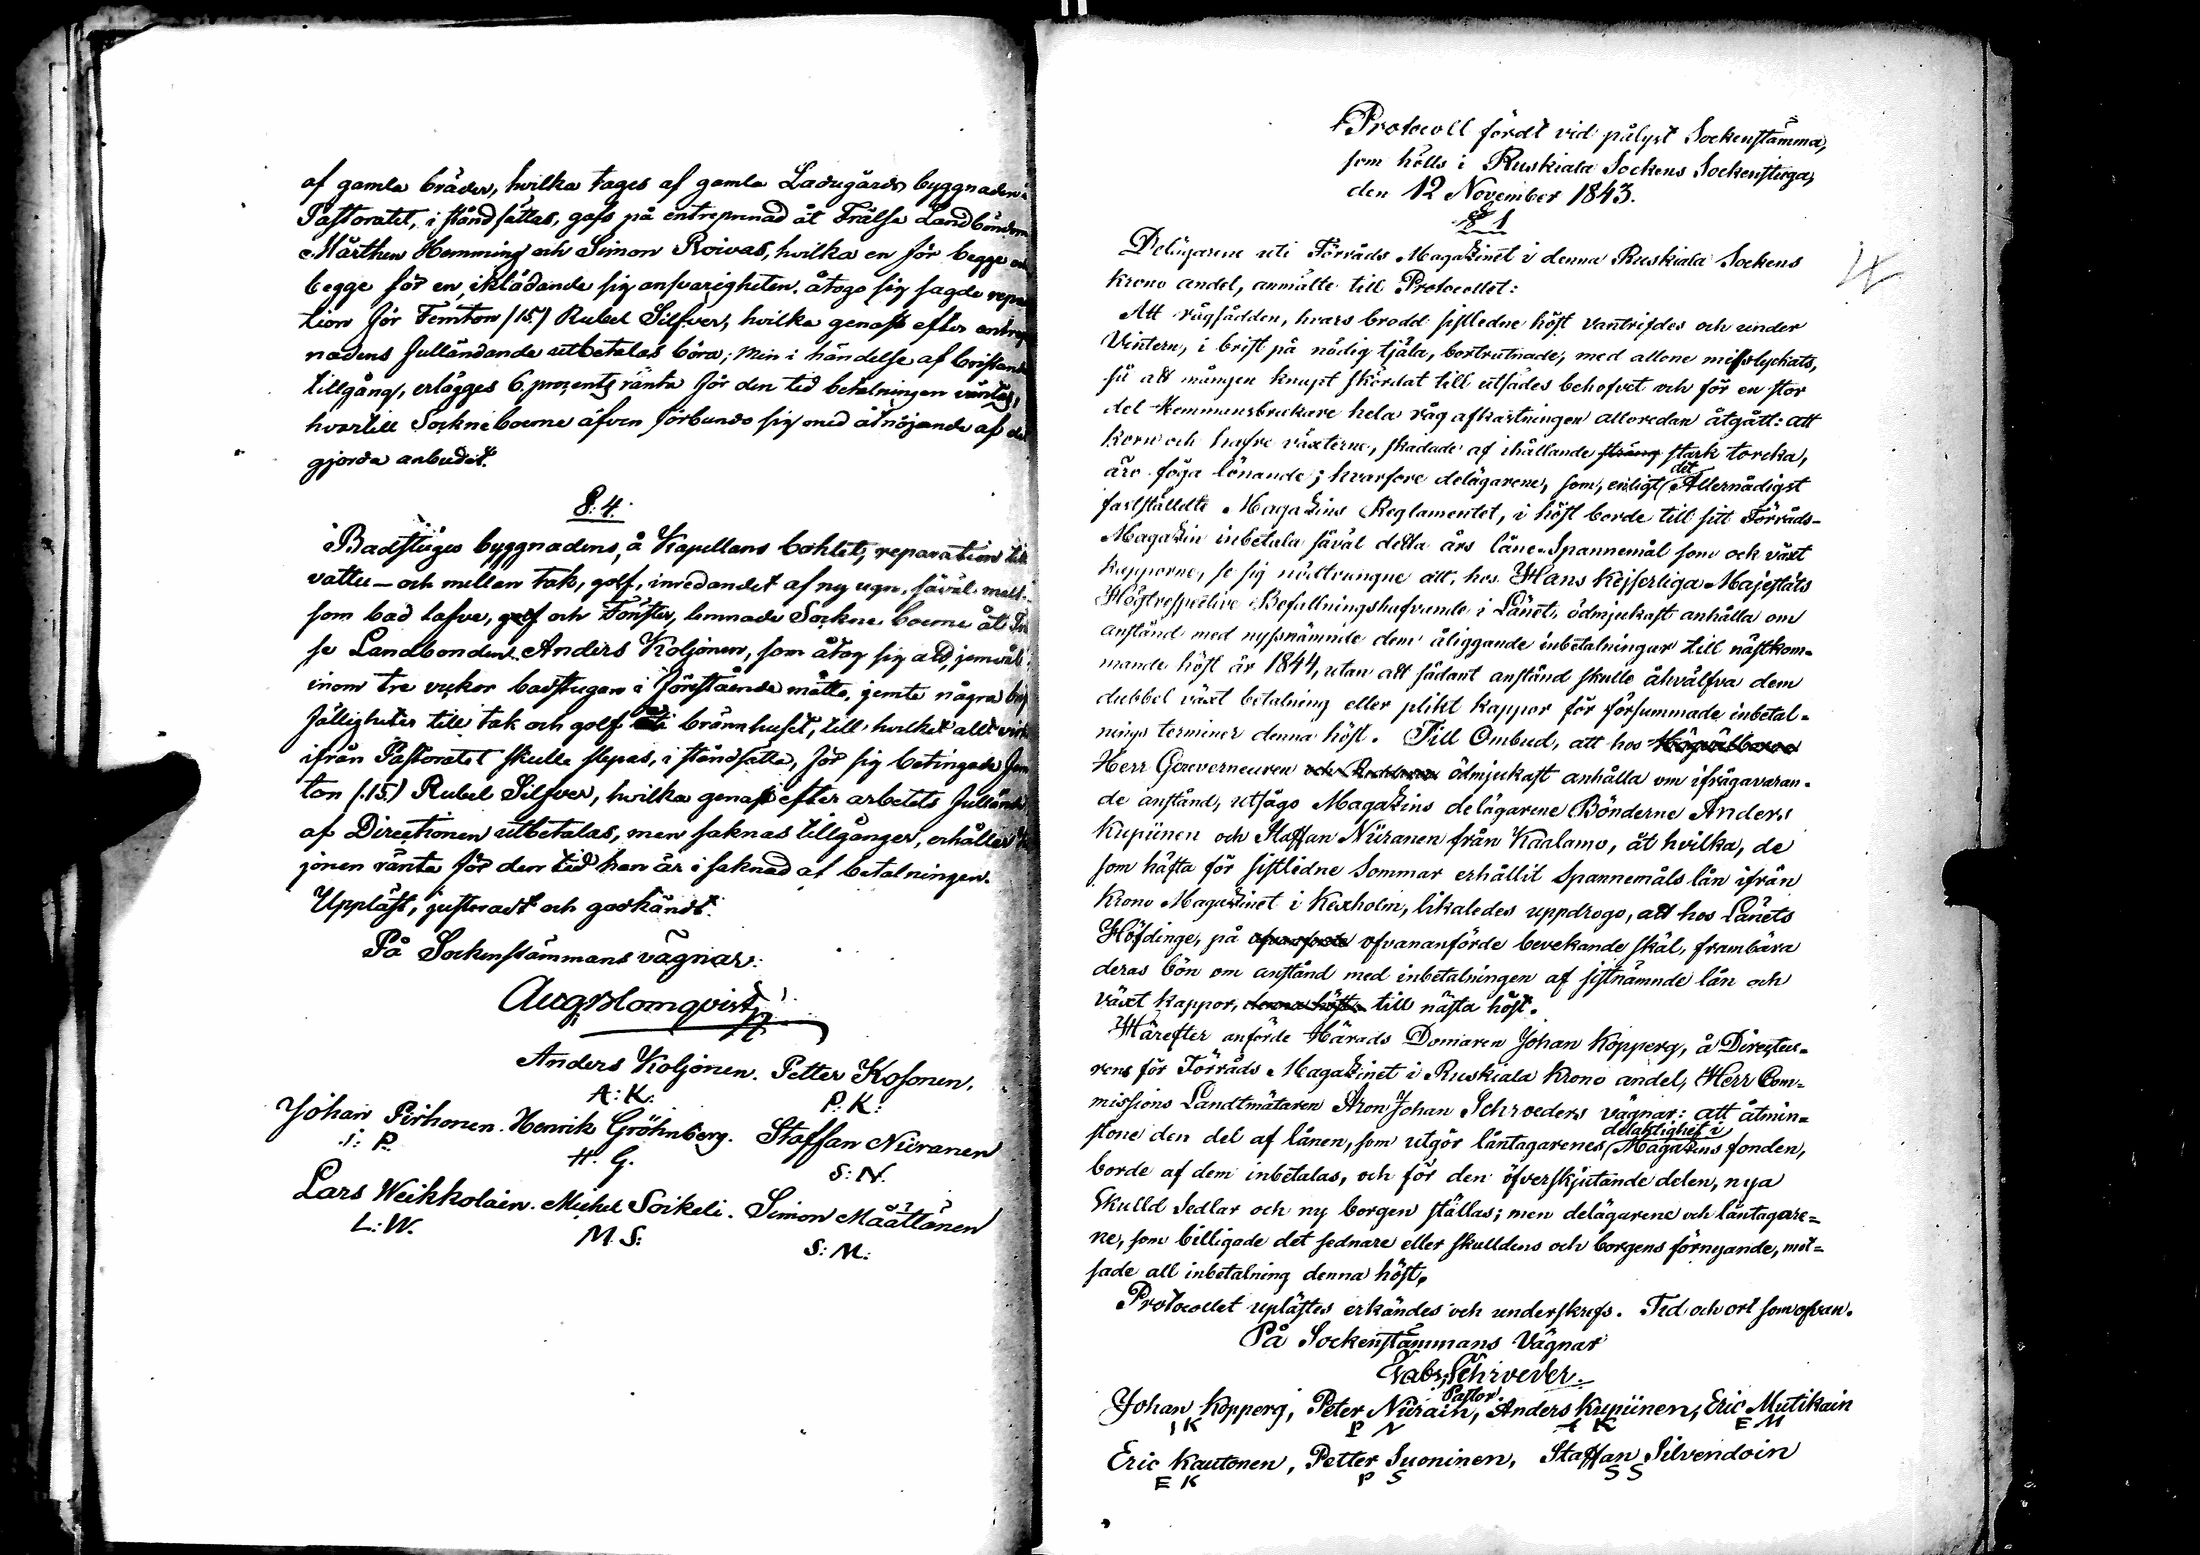 af gamla bräder, hvilka tages af gamla Ladugårds byggnaden i
Pastoratet, i ståndsättas, gafs på entreprenad åt Frälse Landbönderne
Mårthen Hemming och Simon Roivas, hvilka en för begge och
begge för en, iklädande sig ansvarigheten, åtogo sig sagde repa
tion för Femton (15.) Rubel Silfver, hvilka genast efter entrep
nadens fulländande utbetalas böra; men i händelse af bristande
tillgång, erlägges 6 prozents ränta för den tid betalningen väntas,
hvartill Sockneboerne äfven förbundo sig med åtnöjande af det
gjorda anbudet.
§. 4.
Badstuge byggnadens, å Kapellans bohlet, reparation till
vattu- och mellan tak, golf, inredandet af ny ugn, såväl malt-
som bad lafve, golf och Fönster, lemnade Sockne boerne åt Frä
se Landbonden Anders Koljonen, som åtog sig att, jemväl
inom tre veckor badstugan i förestående måtto, jemte några
fälligheter till tak och golf uti brännhuset, till hvilket allt virke
ifrån Pastoratet skulle slepas, i ståndsätta, för sig betingade Fem
ton (.15.) Rubel Silfver, hvilka genast efter arbetets fulländ
af Directionen utbetalas, men saknas tillgånger, erhåller
jonen ränta för den tid han är i saknad af betalningen.
Uppläst, justeradt och godkändt.
På Sockenstämmans vägnar:
Aug Blomqvist
Anders Koljonen. Petter Kosonen.
A: K: P: K:
Johan Pirhonen. Henrik Gröhnberg. Staffan Niiranen
J: P. H. G. S: N.
Lars Weikkolain. Michel Soikeli. Simon Määttänen
L: W. M: S: S: M:
Protocoll fördt vid pålyst Sockenstämma,
som hölls i Ruskiala Sockens Sockenstuga,
den 12 November 1843.
§ 1
Delägarene uti Förråds Magazinet i denna Ruskiala Sockens
Krono andel, anmälte till Protocollet:
Att rågsådden, hvars brodd sistledne höst vantrifdes och under
Vintern, i brist på nödig tjäla, bortrutnade, med allone misslyckats,
så att mången knapt skördat till utsädes behofvet och för en stor
del Hemmansbrukare hela råg afkastningen alloredan åtgått: att
korn och hafre växterne, skadade af ihållande sträng stark torcka,
äro föga lönande; hvarföre delägarene, som, enligt det Allernådigst
fastställdte Magazins Reglamentet, i höst borde till sitt Förråds-
Magazin inbetala såväl detta års låne-Spannemål som och växt
kapporne, se sig nödtvungne att, hos Hans Kejserliga Majestäts
Högtrespective Befallningshafvande i Länet, ödmjukast anhålla om
anstånd med nyssnämnde dem åliggande inbetalningar till nästkom-
mande höst år 1844, utan att sådant anstånd skulle åhvälfva dem
dubbel växt betalning eller plikt kappor för försummade inbetal-
nings terminer denna höst. Till Ombud, att hos Högvälborne
Herr Gouverneuren och Riddaren ödmjukast anhålla om ifrågavaran-
de anstånd, utsågo Magazins delägarene Bönderne Anders
Kupiinen och Staffan Niiranen från Kaalamo, åt hvilka, de
som häfta för sistledne Sommar erhållit Spannemåls lån ifrån
Krono Magazinet i Kexholm, likaledes uppdrogo, att hos Länets
Höfdinge, på ofvanförde ofvananförde bevekande skäl, frambära
deras bön om anstånd med inbetalningen af sistnämnde lån och
växt kappor, denna höst till nästa höst.
Härefter anförde Härads Domaren Johan Kopperg, å Directeu-
rens för Förråds Magazinet i Ruskiala Krono andel, Herr Com-
missions Landtmätaren Aron Johan Schroeders vägnar: att åtmin-
stone den del af lånen, som utgör låntagarenes delaktighet i Magazins fonden,
borde af dem inbetalas, och för den öfverskjutande delen, nya
Skulld Sedlar och ny borgen ställas; men delägarene och låntagare-
ne, som billigade det sednare eller skulldens och borgens förnyande, mot-
sade all inbetalning denna höst.
Protocollet uplästes erkändes och underskrefs. Tid och ort som ofvan.
På Sockenstämmans Vägnar
Gabr. Schroeder.
Pastor.
Johan Kopperg, Peter Niirain, Anders Kupiinen, Eric Mutikain
I K P N A K E M
Eric Kautonen, Petter Suoninen, Staffan Silvendoin
E K P S S S